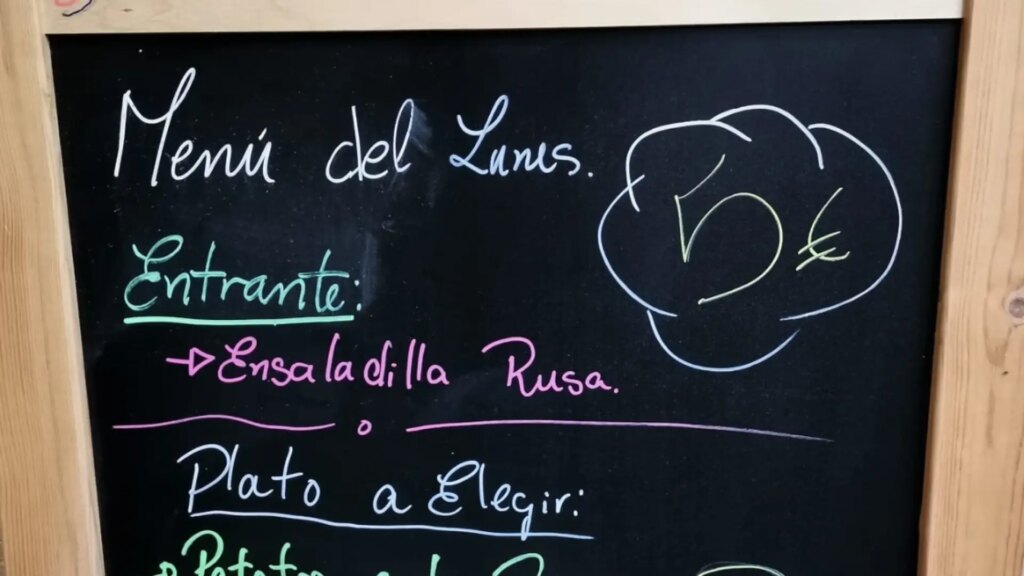 Menú del Lunes.
5 €
Entrante:
→Ensaladilla Rusa.
Plato a Elegir: